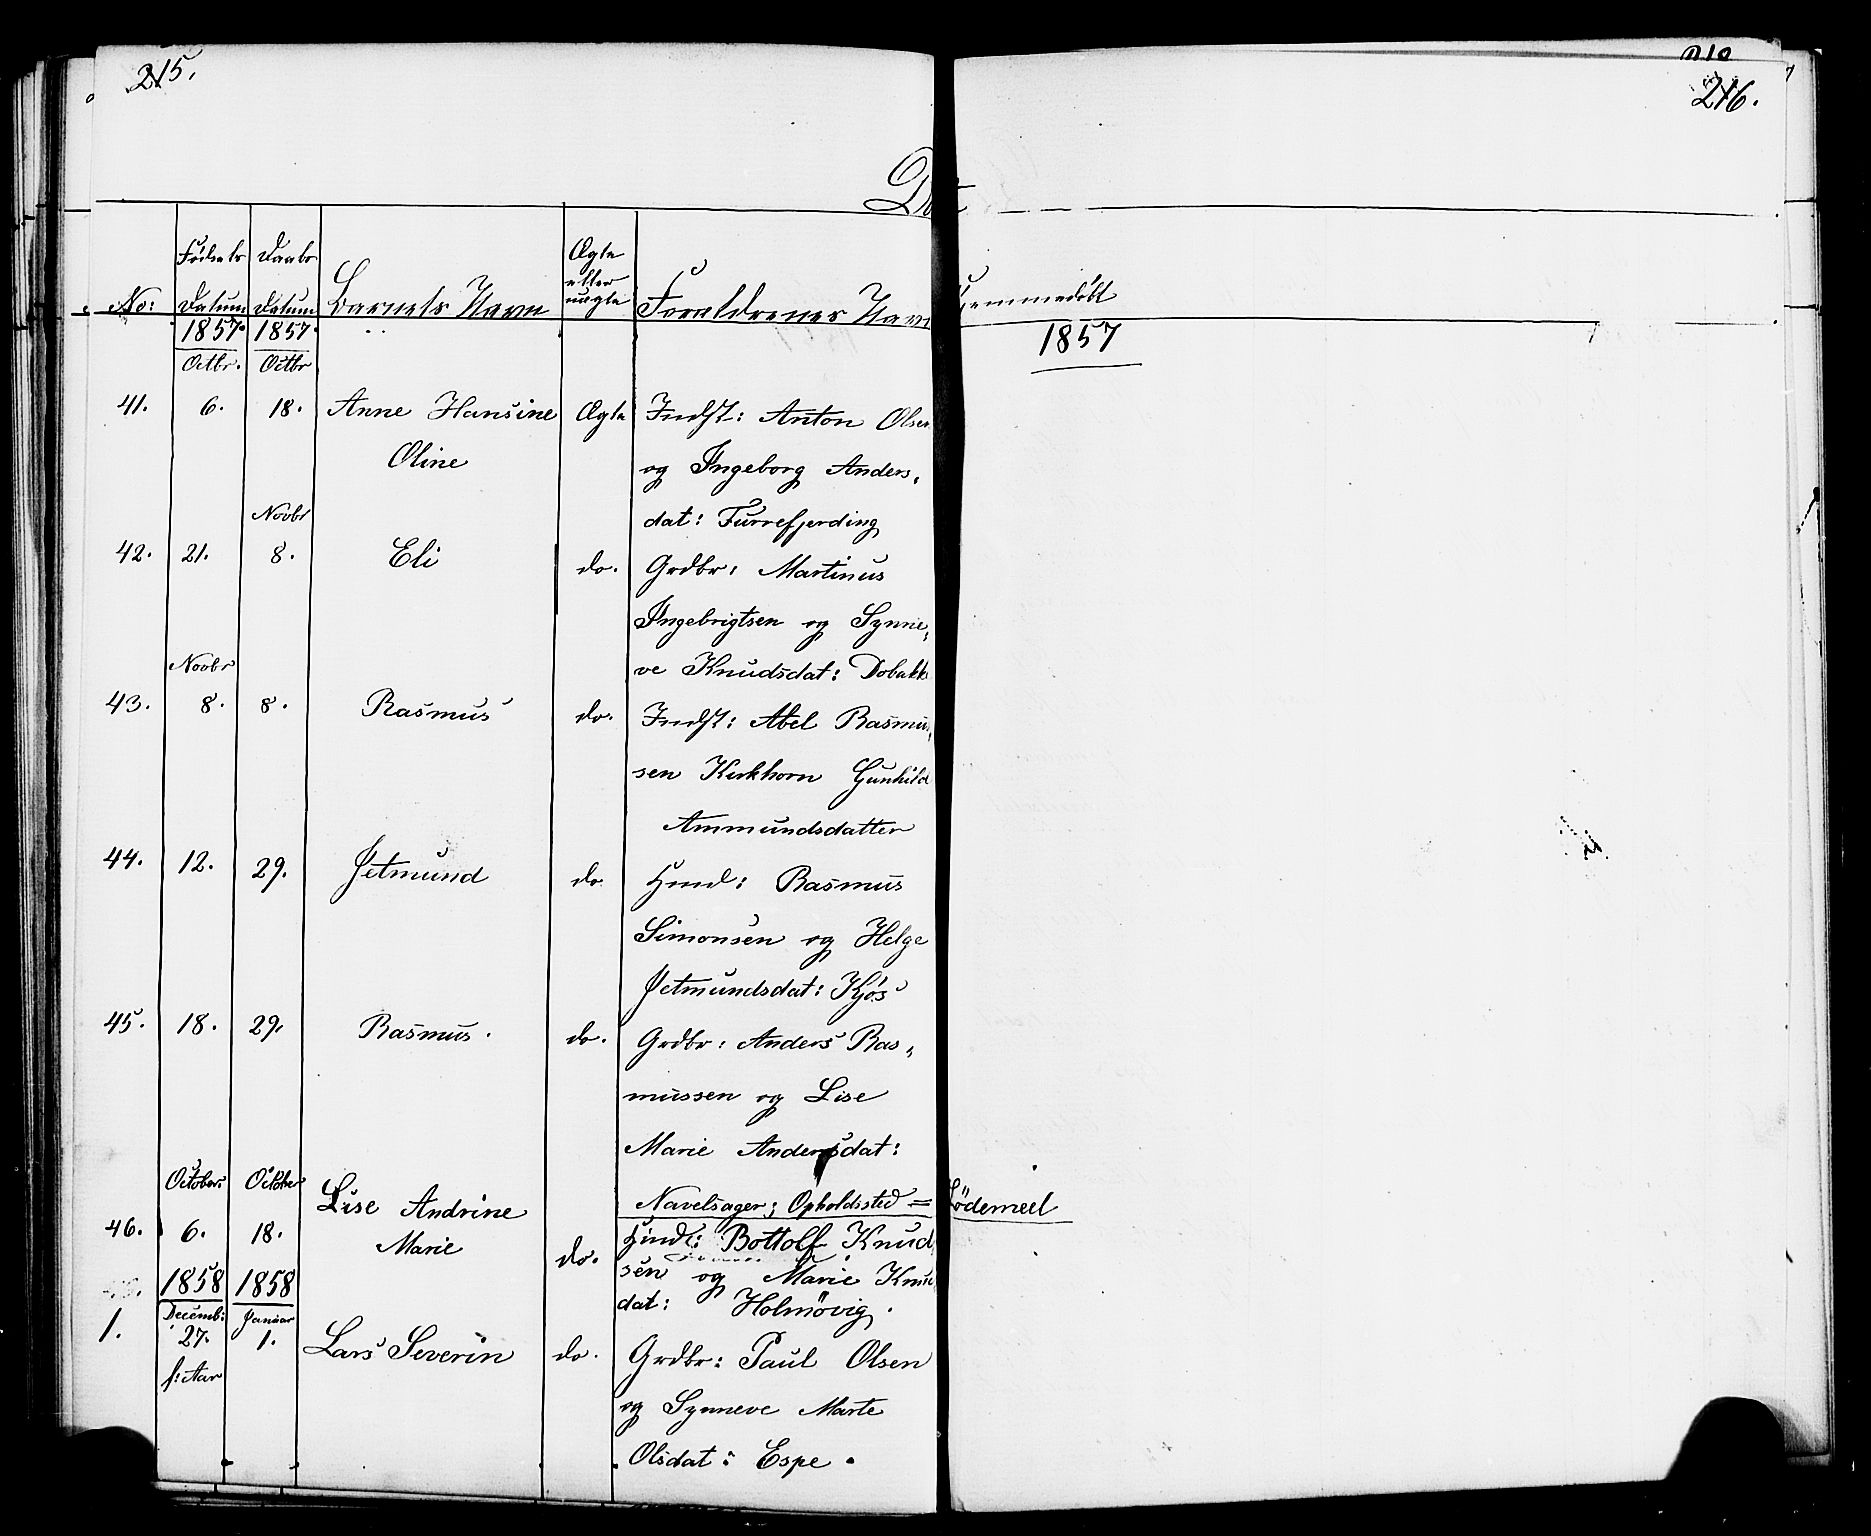 215.
216.
Fødsels Daabs Ægte
eller
No: Datum Datum Barnets Navn uægte Forældrenes Navn Hjemmedøbt
1857. 1857. 1857
Octbr. Octbr
41. 6. 18. Anne Hansine Ægte Indst: Anton Olsen
Oline og Ingeborg Anders,
Novbr dat: Furrefjerding
42. 21. 8. Eli do. Grdbr: Martinus
Ingebrigtsen og Synne,
Novbr ve Knudsdat: Dobakk
43. 8. 8. Rasmus do. Indst: Abel Rasmus,
sen Kirkhorn Gunhild
Ammundsdatter
44. 12. 29. Jetmund do Hmd: Rasmus
Simonsen og Helge
Jetmundsdat: Kjøs
45. 18. 29. Rasmus. do. Grdbr: Anders Ras,
mussen og Lise
Marie Andersdat:
October October Navelsager; Opholdssted = Lödemeel
46. 6. 18. Lise Andrine Marie do. Hmd: Bottolf Knud
sen og Marie Knud
dat: Holmövig.
1858 1858
Decemb: Januar
1. 27. 1. Lars Severin do. Grdbr: Paul Olsen
f: Aar og Synneve Marte
Olsdat: Espe.